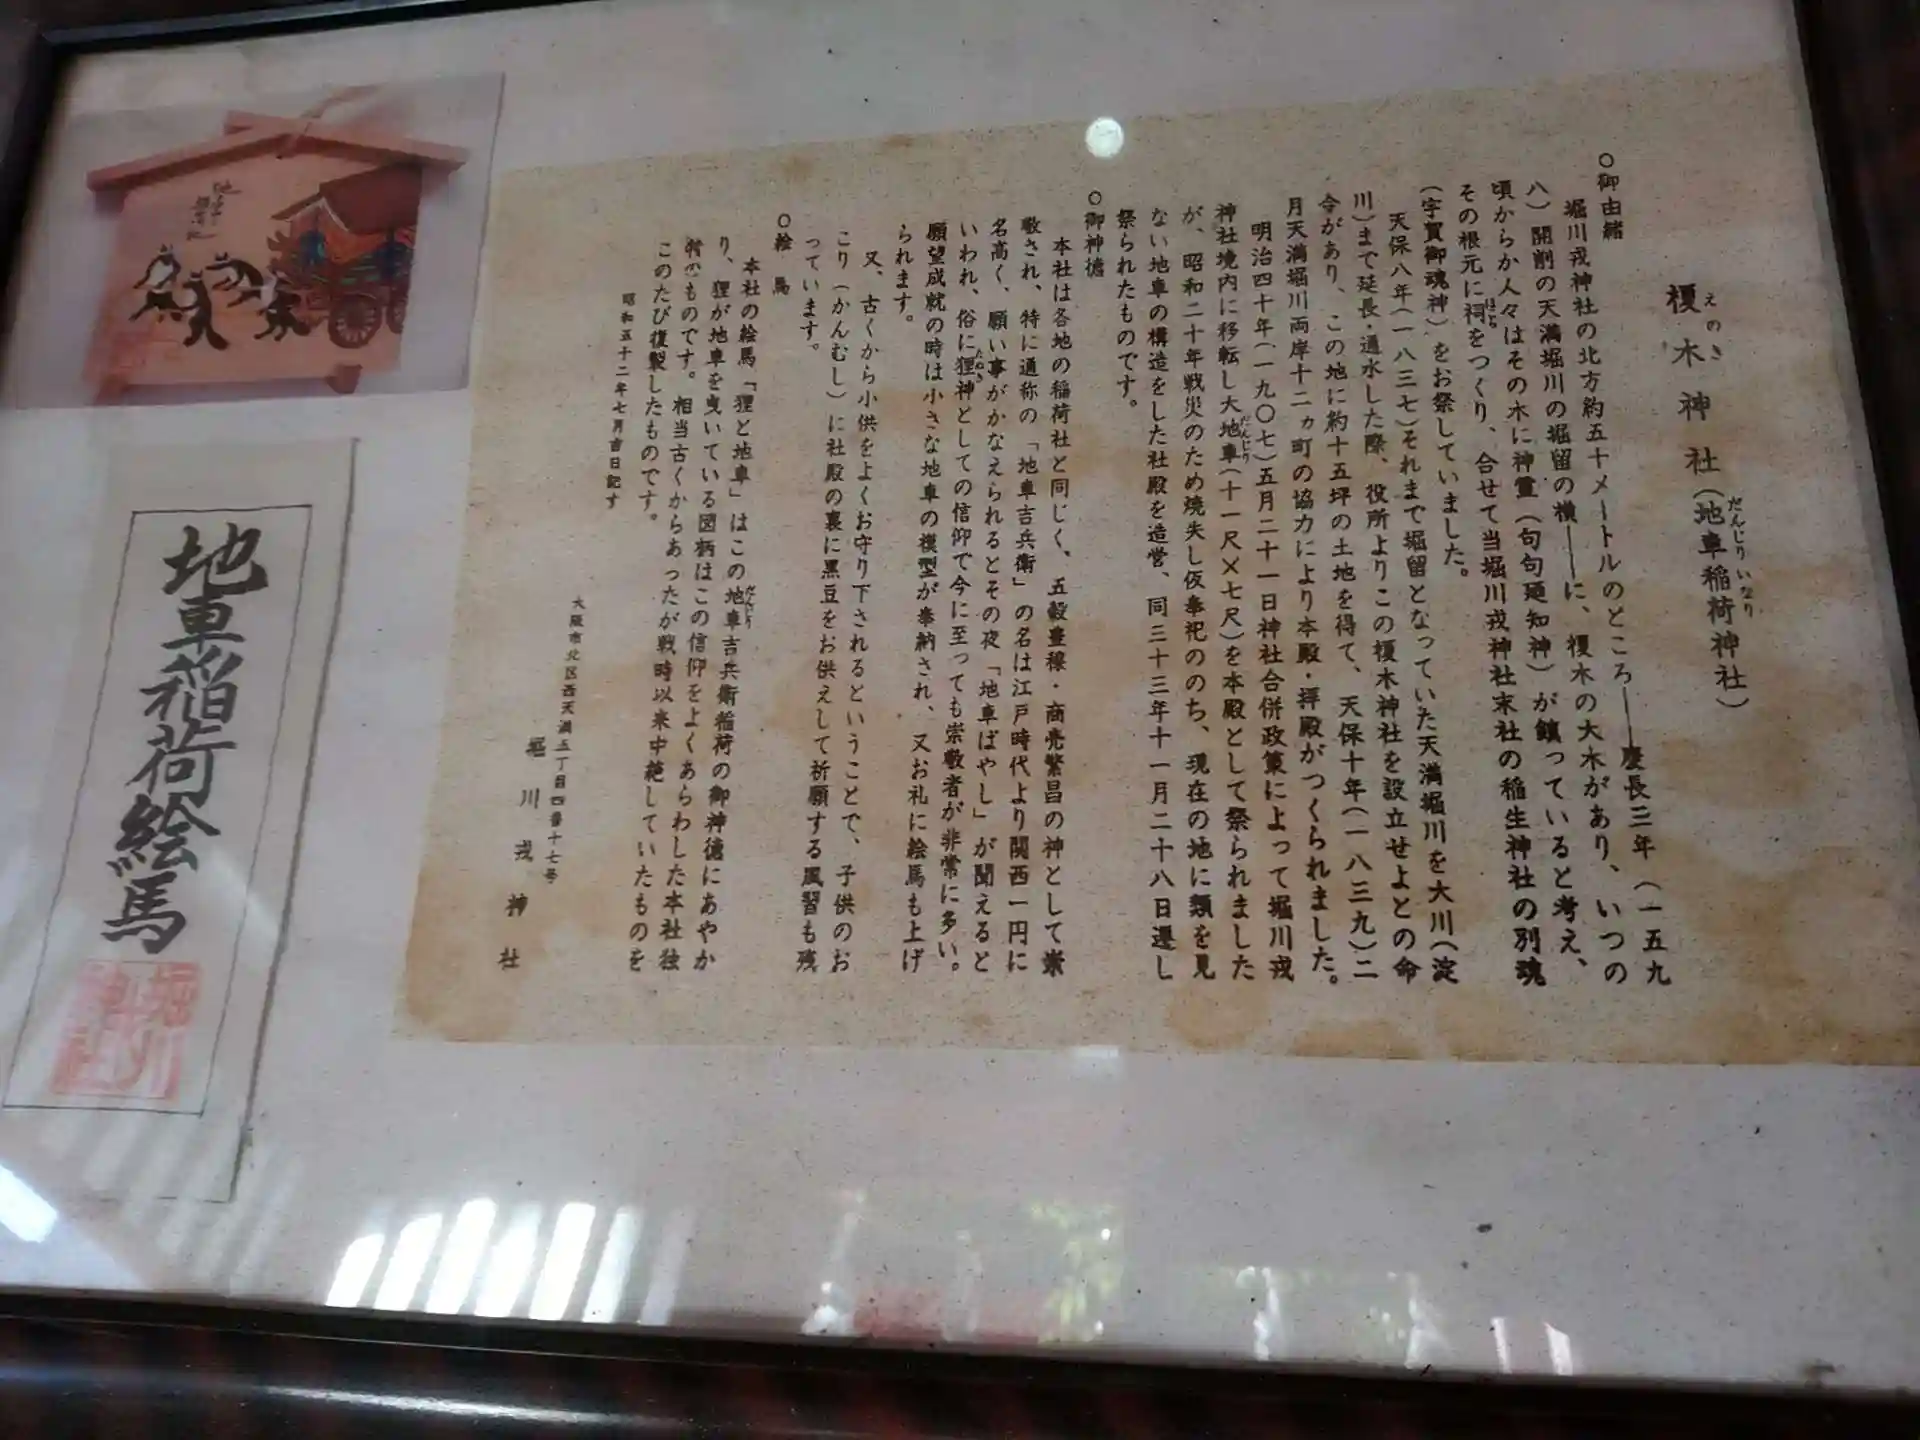 榎木神社(地車稲荷神社)
えのき
だんじりいなり
○御由緒
堀川戎神社の北方約五十メートルのところ――慶長三年(一五九
八)開削の天満堀川の堀留の横――に、榎木の大木があり、いつの
頃からか人々はその木に神霊(句句廼知神)が鎮っていると考え、
その根元に祠をつくり、合せて当堀川戎神社末社の稲生神社の別魂
ほこら
(宇賀御魂神)をお祭していました。
天保八年(一八三七)それまで堀留となっていた天満堀川を大川(淀
川)まで延長・通水した際、役所よりこの榎木神社を設立せよとの命
令があり、この地に約十五坪の土地を得て、天保十年(一八三九)二
月天満堀川両岸十二ヵ町の協力により本殿・拝殿がつくられました。
明治四十年(一九〇七)五月二十一日神社合併政策によって堀川戎
神社境内に移転し大地車(十一尺×七尺)を本殿として祭られました
だんじり
が、昭和二十年戦災のため焼失し仮奉祀ののち、現在の地に類を見
ない地車の構造をした社殿を造営、同三十三年十一月二十八日遷し
祭られたものです。
○御神徳
本社は各地の稲荷社と同じく、五穀豊穣・商売繁昌の神として崇
敬され、特に通称の「地車吉兵衛」の名は江戸時代より関西一円に
名高く、願い事がかなえられるとその夜「地車ばやし」が聞えると
いわれ、俗に狸神としての信仰で今に至っても崇敬者が非常に多い。
たぬき
願望成就の時は小さな地車の模型が奉納され、又お礼に絵馬も上げ
られます。
又、古くから小供をよくお守り下されるということで、子供のお
こり(かんむし)に社殿の裏に黒豆をお供えして祈願する風習も残
っています。
○絵馬
本社の絵馬「狸と地車」はこの地車吉兵衛稲荷の御神徳にあやか
だんじり
り、狸が地車を曳いている図柄はこの信仰をよくあらわした本社独
特のものです。相当古くからあったが戦時以来中絶していたものを
このたび復製したものです。
昭和五十二年七月吉日記す
大阪市北区西天満五丁目四番十七号
堀川戎神社
地車稲荷絵馬
堀川